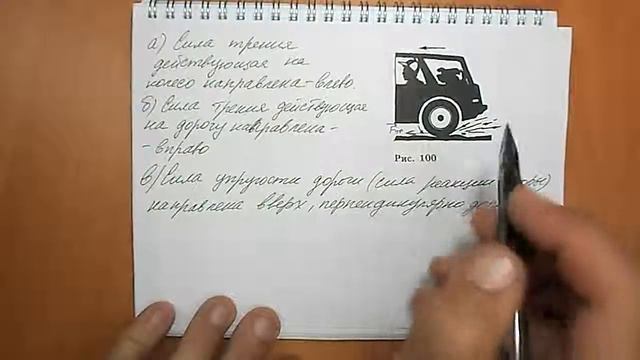 а) Сила трения
действующая на
колесо направлена - влево.
б) Сила трения действующая
на дорогу направлена -
- вправо
в) Сила упругости дороги (сила реакции
направлена вверх, перпендикулярно
Fтр
Рис. 100